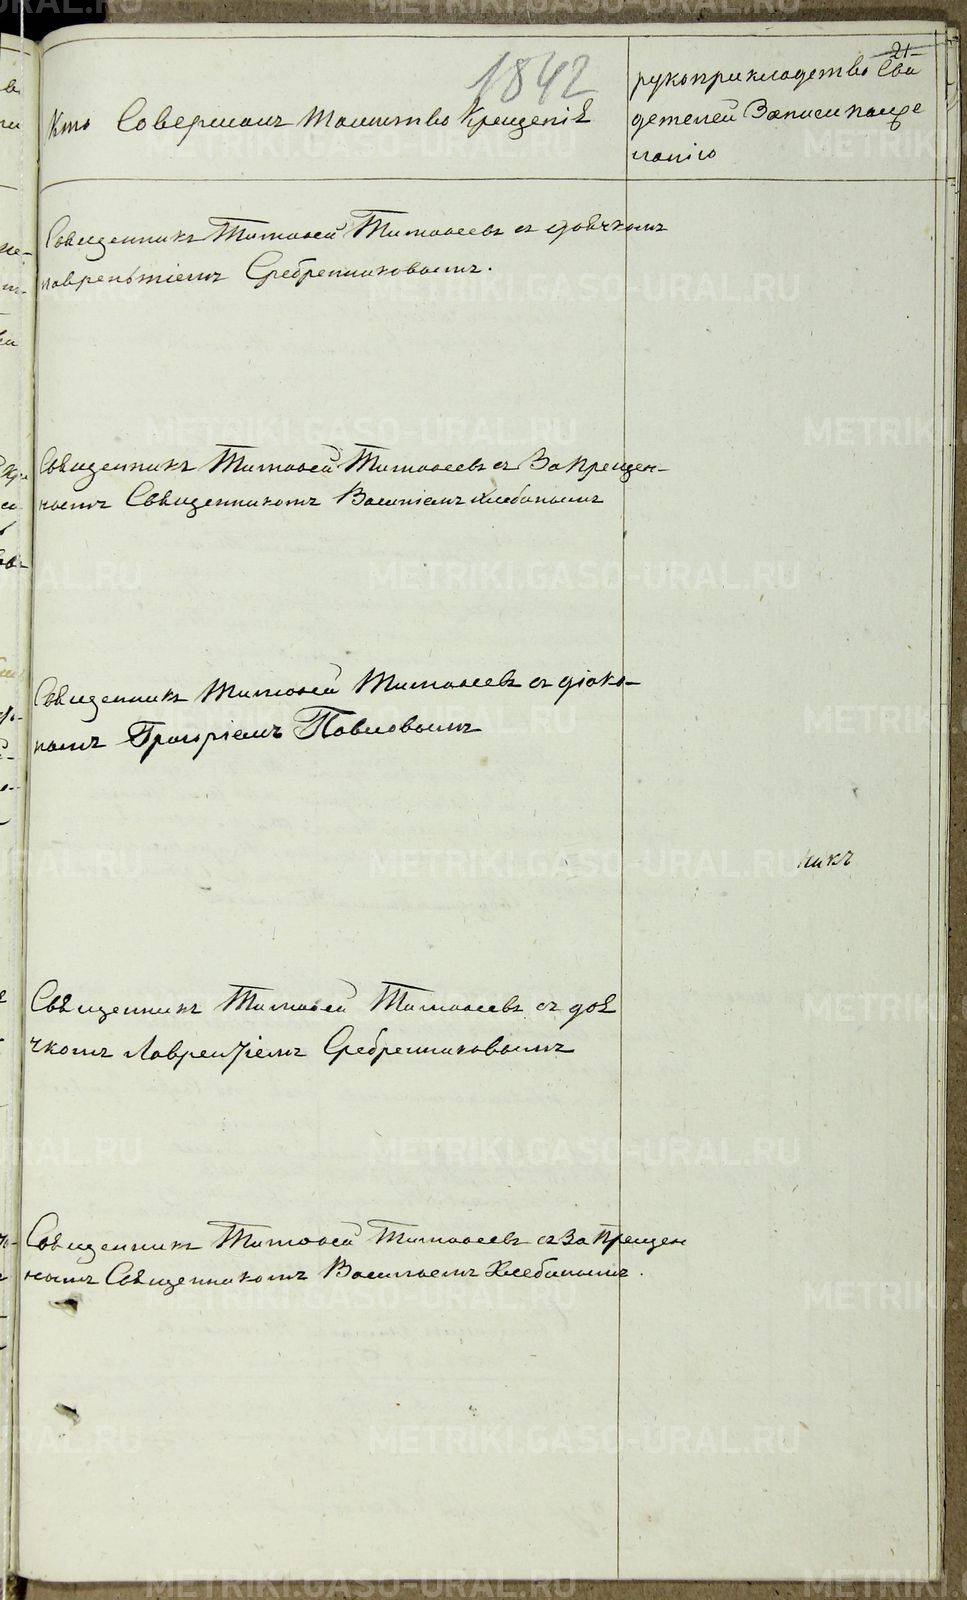 1842
21
Кто Совершалъ Таинство Крещенiѣ
рукоприкладство Сви
детелей Записи по же
ланiю
Священникъ Тимофей Тимофеевъ съ дьячкомъ
лаврентiемъ Сребренниковымъ.
Священникъ Тимофей Тимофеевъ съ Запрещен-
нымъ Священникомъ Василiемъ Хлебинымъ
Священникъ Тимофей Тимофеевъ съ дiако-
номъ Григорiемъ Павловымъ
никъ
Священникъ Тимофей Тимофеевъ съ дьѣ
чкомъ Лаврентiемъ Сребренниковымъ
Священникъ Тимофей Тимофеевъ съ Запрещен
нымъ Священникомъ Васильемъ Хлебинымъ.